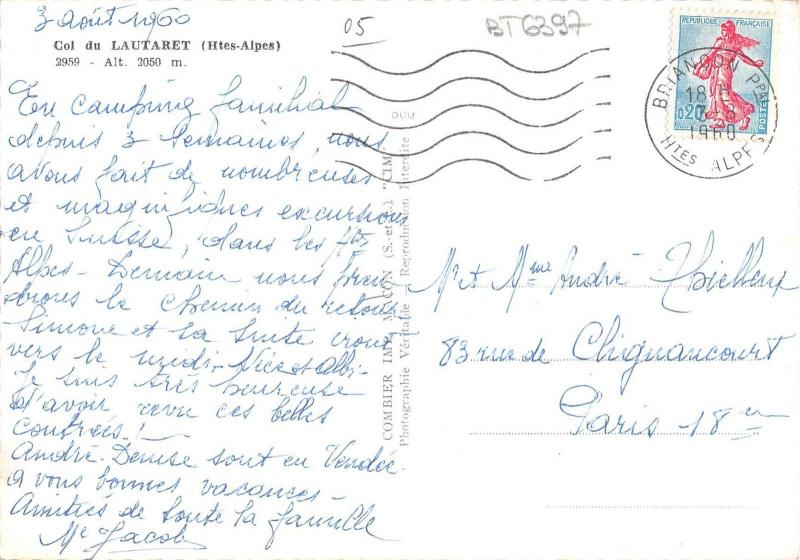 3 août 1960
Col du LAUTARET (Htes-Alpes)
2959 - Alt. 2050 m.
En camping familial
depuis 3 semaines, nous
avons fait de nombreuses
et magnifiques excursions
en Suisse, dans les Htes
Alpes - Demain nous pren
drons le chemin du retour
Simone et sa suite iront
vers le midi - Nice et Albi -
Je suis très heureuse
d'avoir revu ces belles
contrées! -
André - Denise sont en Vendée.
à vous bonnes vacances -
Amitiés de toute la famille
Me Jacob
COMBIER IMP. MACON (S.-et-L.) "CIM"
Photographie Véritable Reproduction Interdite
05
BT6397
REPUBLIQUE FRANÇAISE
0,20
POSTES
BRIANÇON PPAL
18 H
3-8
1960
HTES ALPES
Mr et Mme André
83 rue de Clignancourt
Paris - 18 em